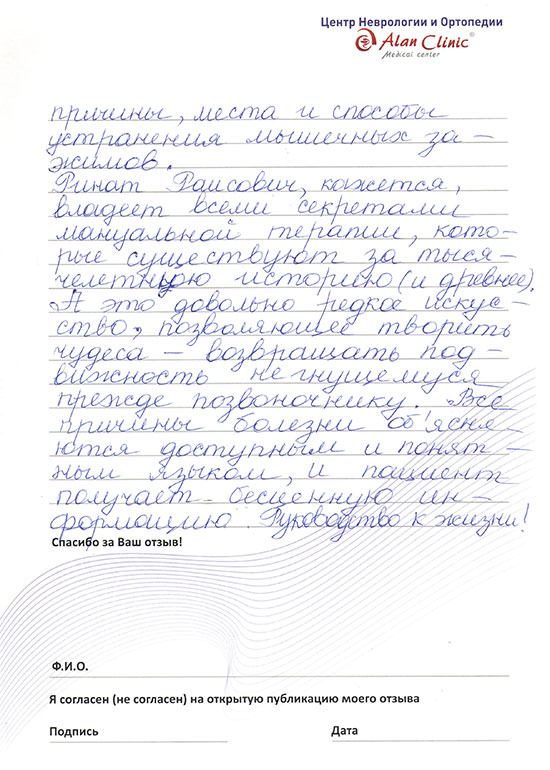 Центр Неврологии и Ортопедии
Alan Clinic®
Medical center
причины, места и способы
устранения мышечных за-
жимов.
Ринат Раисович, кажется,
владеет всеми секретами
мануальной терапии, кото-
рые существуют за тыся-
челетнюю историю (и древнее).
А это довольно редкое искус-
ство, позволяющее творить
чудеса – возвращать под-
вижность не гнущемуся
прежде позвоночнику. Все
причины болезни об'ясня-
ются доступным и понят-
ным языком, и пациент
получает бесценную ин-
формацию. Руководство к жизни!
Спасибо за Ваш отзыв!
Ф.И.О.
Я согласен (не согласен) на открытую публикацию моего отзыва
Подпись
Дата